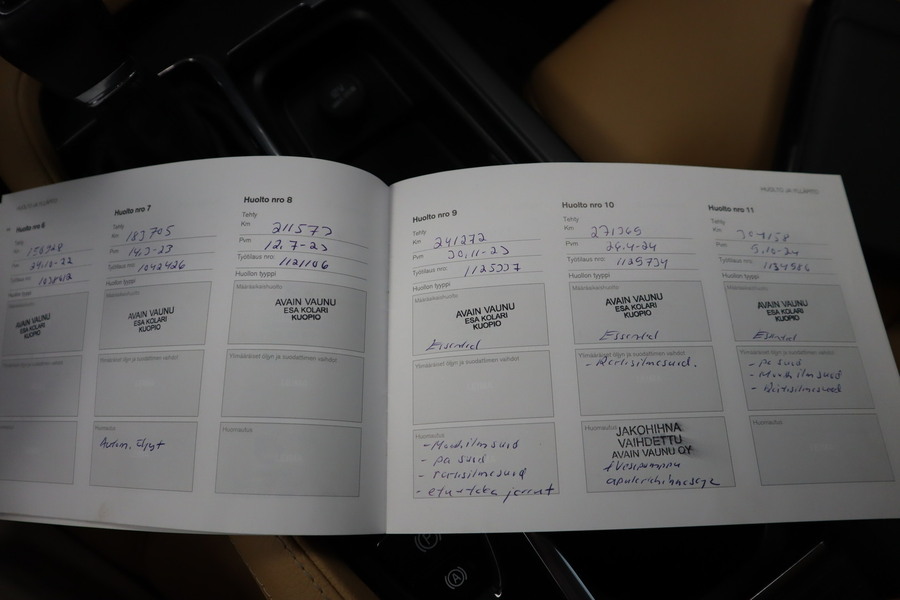 HUOLTO JA YLLÄPITO
Huolto nro 6
Tehty
Km
Pvm
Työtilaus nro:
Huollon tyyppi
AVAIN VAUNU
ESA KOLARI
KUOPIO
Huolto nro 7
Tehty
Km 183705
Pvm 14.3-23
Työtilaus nro: 1042426
Huollon tyyppi
Määräaikaishuolto
AVAIN VAUNU
ESA KOLARI
KUOPIO
Ylimääräiset öljyn ja suodattimen vaihdot
Huomautus
Autom. öljyt
Huolto nro 8
Tehty
Km 211573
Pvm 12.7-23
Työtilaus nro: 1121106
Huollon tyyppi
Määräaikaishuolto
AVAIN VAUNU
ESA KOLARI
KUOPIO
Ylimääräiset öljyn ja suodattimen vaihdot
Huomautus
HUOLTO JA YLLÄPITO
Huolto nro 9
Tehty
Km 241272
Pvm 30.11-23
Työtilaus nro:
Huollon tyyppi
Määräaikaishuolto
AVAIN VAUNU
ESA KOLARI
KUOPIO
Essential
Ylimääräiset öljyn ja suodattimen vaihdot
Huomautus
- Moott.ilm suod
- pa suod
- raitisilmasuod
- etu+taka jarrut
Huolto nro 10
Tehty
Km 271365
Pvm 26.4-24
Työtilaus nro: 1129734
Huollon tyyppi
Määräaikaishuolto
AVAIN VAUNU
ESA KOLARI
KUOPIO
Essential
Ylimääräiset öljyn ja suodattimen vaihdot
- Raitisilmasuod.
Huomautus
JAKOHIHNA
VAIHDETTU
AVAIN VAUNU OY
+Vesipumppu
apulaitehihnasarja
Huolto nro 11
Tehty
Km 304158
Pvm
Työtilaus nro: 1134586
Huollon tyyppi
Määräaikaishuolto
AVAIN VAUNU
ESA KOLARI
KUOPIO
Essential
Ylimääräiset öljyn ja suodattimen vaihdot
- pa suod
- Moott.ilmsuod
- Raitisilmasuod
Huomautus